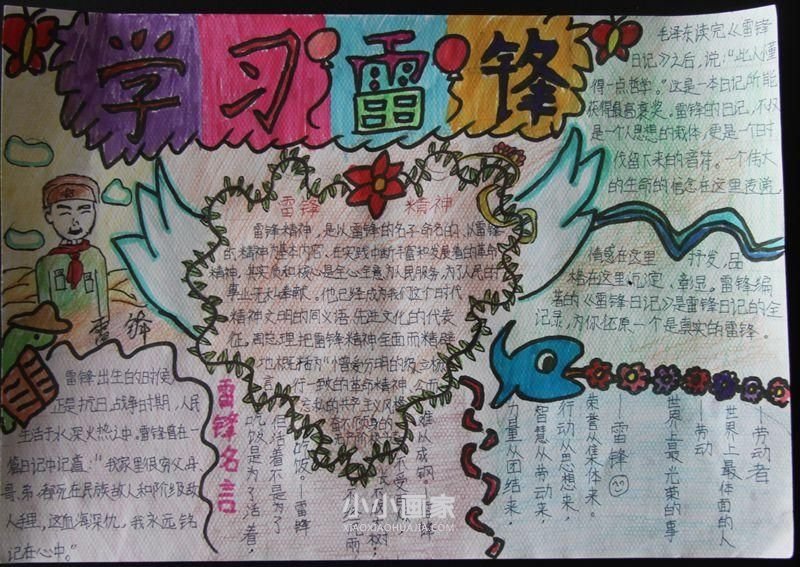 学习雷锋
毛泽东读完《雷锋
日记》之后，说："此人懂
得一点哲学。"这是一本日记所能
获得最高褒奖。雷锋的日记，不仅
是一个人思想的载体，更是一个时
代留下来的
一个伟大
的生命的信念在这里表诞
雷锋 精神
雷锋精神，是以雷锋的名字命名的，以雷锋
的精神为基本内容，在实践中断丰富和发展着的革命
精神，其实质和核心是全心全意为人民服务，为了人民的
事业无私奉献。他已经成为我们这个时代
精神文明的同义语，先进文化的代表
征。周总理把雷锋精神全面而精辟
地概括为"憎爱分明的阶
行一致的革命精神，公而
忘我的共产主义风格
情感在这里 抒发，品
格在这里沉淀，彰显。雷锋编
著的《雷锋日记》是雷锋日记的全
记录，为你还原一个是真实的雷锋。
雷锋
雷锋出生的时候，
正是抗日战争时期，人民
生活于水深火热之中。雷锋曾在一
篇日记中记嘉："我家里很穷父、母、
哥、弟都死在民族敌人和阶级敌
人手里，这血海深仇，我永远铭
记在心中。"
雷锋名言
吃饭是为了活着，
但活着不是为了
吃饭。——雷锋
力量从团结来，
智慧从劳动来，
行动从思想来，
荣誉从集体来。
——雷锋
世界上最光荣的事
——劳动
世界上最体面的人
——劳动者
小小画家
XIAOXIAOHUAJIA.COM